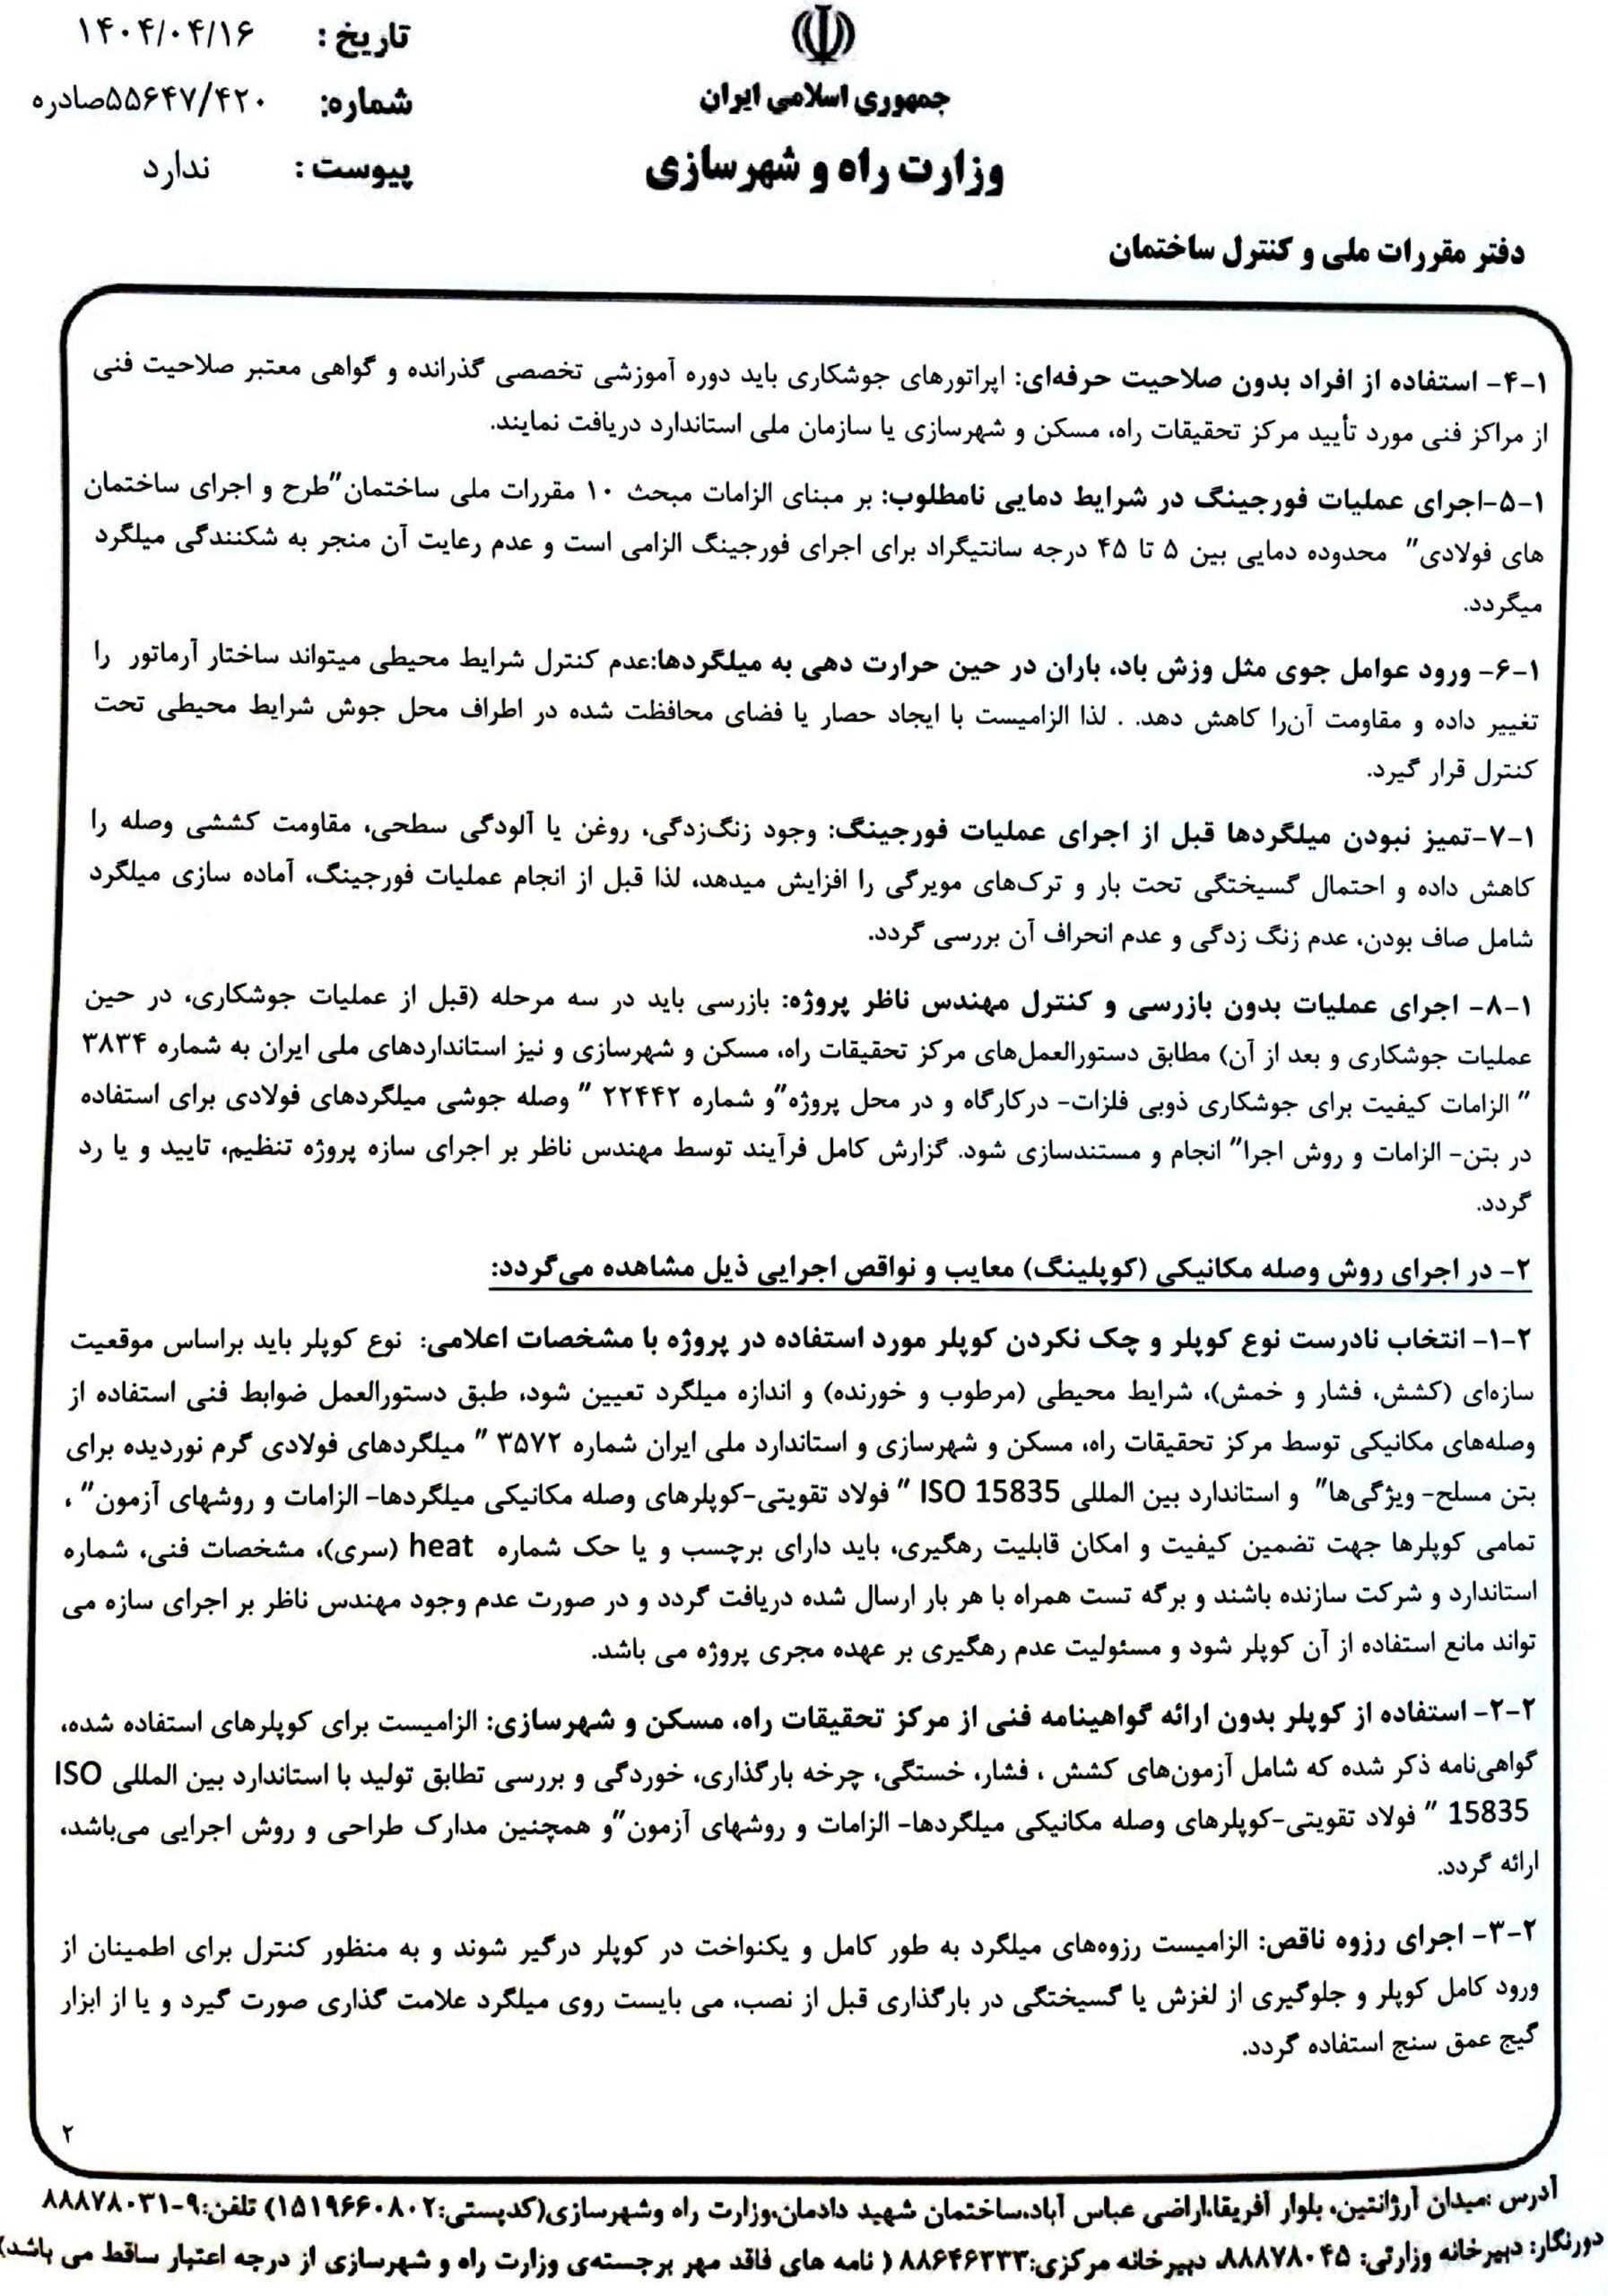 جمهوری اسلامی ایران
وزارت راه و شهرسازی
تاریخ : ۱۴۰۴/۰۴/۱۶
شماره: ۵۵۶۴۷/۴۲۰صادره
پیوست : ندارد
دفتر مقررات ملی و کنترل ساختمان
۱-۴- استفاده از افراد بدون صلاحیت حرفه‌ای: اپراتورهای جوشکاری باید دوره آموزشی تخصصی گذرانده و گواهی معتبر صلاحیت فنی
از مراکز فنی مورد تأیید مرکز تحقیقات راه، مسکن و شهرسازی یا سازمان ملی استاندارد دریافت نمایند.
۱-۵-اجرای عملیات فورجینگ در شرایط دمایی نامطلوب: بر مبنای الزامات مبحث ۱۰ مقررات ملی ساختمان"طرح و اجرای ساختمان
های فولادی" محدوده دمایی بین ۵ تا ۴۵ درجه سانتیگراد برای اجرای فورجینگ الزامی است و عدم رعایت آن منجر به شکنندگی میلگرد
میگردد.
۱-۶- ورود عوامل جوی مثل وزش باد، باران در حین حرارت دهی به میلگردها:عدم کنترل شرایط محیطی میتواند ساختار آرماتور را
تغییر داده و مقاومت آن‌را کاهش دهد. . لذا الزامیست با ایجاد حصار یا فضای محافظت شده در اطراف محل جوش شرایط محیطی تحت
کنترل قرار گیرد.
۱-۷-تمیز نبودن میلگردها قبل از اجرای عملیات فورجینگ: وجود زنگ‌زدگی، روغن یا آلودگی سطحی، مقاومت کششی وصله را
کاهش داده و احتمال گسیختگی تحت بار و ترک‌های مویرگی را افزایش میدهد، لذا قبل از انجام عملیات فورجینگ، آماده سازی میلگرد
شامل صاف بودن، عدم زنگ زدگی و عدم انحراف آن بررسی گردد.
۱-۸- اجرای عملیات بدون بازرسی و کنترل مهندس ناظر پروژه: بازرسی باید در سه مرحله (قبل از عملیات جوشکاری، در حین
عملیات جوشکاری و بعد از آن) مطابق دستورالعمل‌های مرکز تحقیقات راه، مسکن و شهرسازی و نیز استانداردهای ملی ایران به شماره ۳۸۳۴
" الزامات کیفیت برای جوشکاری ذوبی فلزات- درکارگاه و در محل پروژه"و شماره ۲۲۴۴۲ " وصله جوشی میلگردهای فولادی برای استفاده
در بتن- الزامات و روش اجرا" انجام و مستندسازی شود. گزارش کامل فرآیند توسط مهندس ناظر بر اجرای سازه پروژه تنظیم، تایید و یا رد
گردد.
۲- در اجرای روش وصله مکانیکی (کوپلینگ) معایب و نواقص اجرایی ذیل مشاهده می‌گردد:
۲-۱- انتخاب نادرست نوع کوپلر و چک نکردن کوپلر مورد استفاده در پروژه با مشخصات اعلامی: نوع کوپلر باید براساس موقعیت
سازه‌ای (کشش، فشار و خمش)، شرایط محیطی (مرطوب و خورنده) و اندازه میلگرد تعیین شود، طبق دستورالعمل ضوابط فنی استفاده از
وصله‌های مکانیکی توسط مرکز تحقیقات راه، مسکن و شهرسازی و استاندارد ملی ایران شماره ۳۵۷۲ " میلگردهای فولادی گرم نوردیده برای
بتن مسلح- ویژگی‌ها" و استاندارد بین المللی ISO 15835 " فولاد تقویتی-کوپلرهای وصله مکانیکی میلگردها- الزامات و روشهای آزمون" ،
تمامی کوپلرها جهت تضمین کیفیت و امکان قابلیت رهگیری، باید دارای برچسب و یا حک شماره heat (سری)، مشخصات فنی، شماره
استاندارد و شرکت سازنده باشند و برگه تست همراه با هر بار ارسال شده دریافت گردد و در صورت عدم وجود مهندس ناظر بر اجرای سازه می
تواند مانع استفاده از آن کوپلر شود و مسئولیت عدم رهگیری بر عهده مجری پروژه می باشد.
۲-۲- استفاده از کوپلر بدون ارائه گواهینامه فنی از مرکز تحقیقات راه، مسکن و شهرسازی: الزامیست برای کوپلرهای استفاده شده،
گواهی‌نامه ذکر شده که شامل آزمون‌های کشش ، فشار، خستگی، چرخه بارگذاری، خوردگی و بررسی تطابق تولید با استاندارد بین المللی ISO
15835 " فولاد تقویتی-کوپلرهای وصله مکانیکی میلگردها- الزامات و روشهای آزمون"و همچنین مدارک طراحی و روش اجرایی می‌باشد،
ارائه گردد.
۲-۳- اجرای رزوه ناقص: الزامیست رزوه‌های میلگرد به طور کامل و یکنواخت در کوپلر درگیر شوند و به منظور کنترل برای اطمینان از
ورود کامل کوپلر و جلوگیری از لغزش یا گسیختگی در بارگذاری قبل از نصب، می بایست روی میلگرد علامت گذاری صورت گیرد و یا از ابزار
گیج عمق سنج استفاده گردد.
۲
آدرس :میدان آرژانتین، بلوار آفریقا،اراضی عباس آباد،ساختمان شهید دادمان،وزارت راه وشهرسازی(کدپستی:۱۵۱۹۶۶۰۸۰۲) تلفن:۹-۸۸۸۷۸۰۳۱
دورنگار: دبیرخانه وزارتی: ۸۸۸۷۸۰۴۵، دبیرخانه مرکزی:۸۸۶۴۶۳۳۳ ( نامه های فاقد مهر برجسته‌ی وزارت راه و شهرسازی از درجه اعتبار ساقط می باشد)